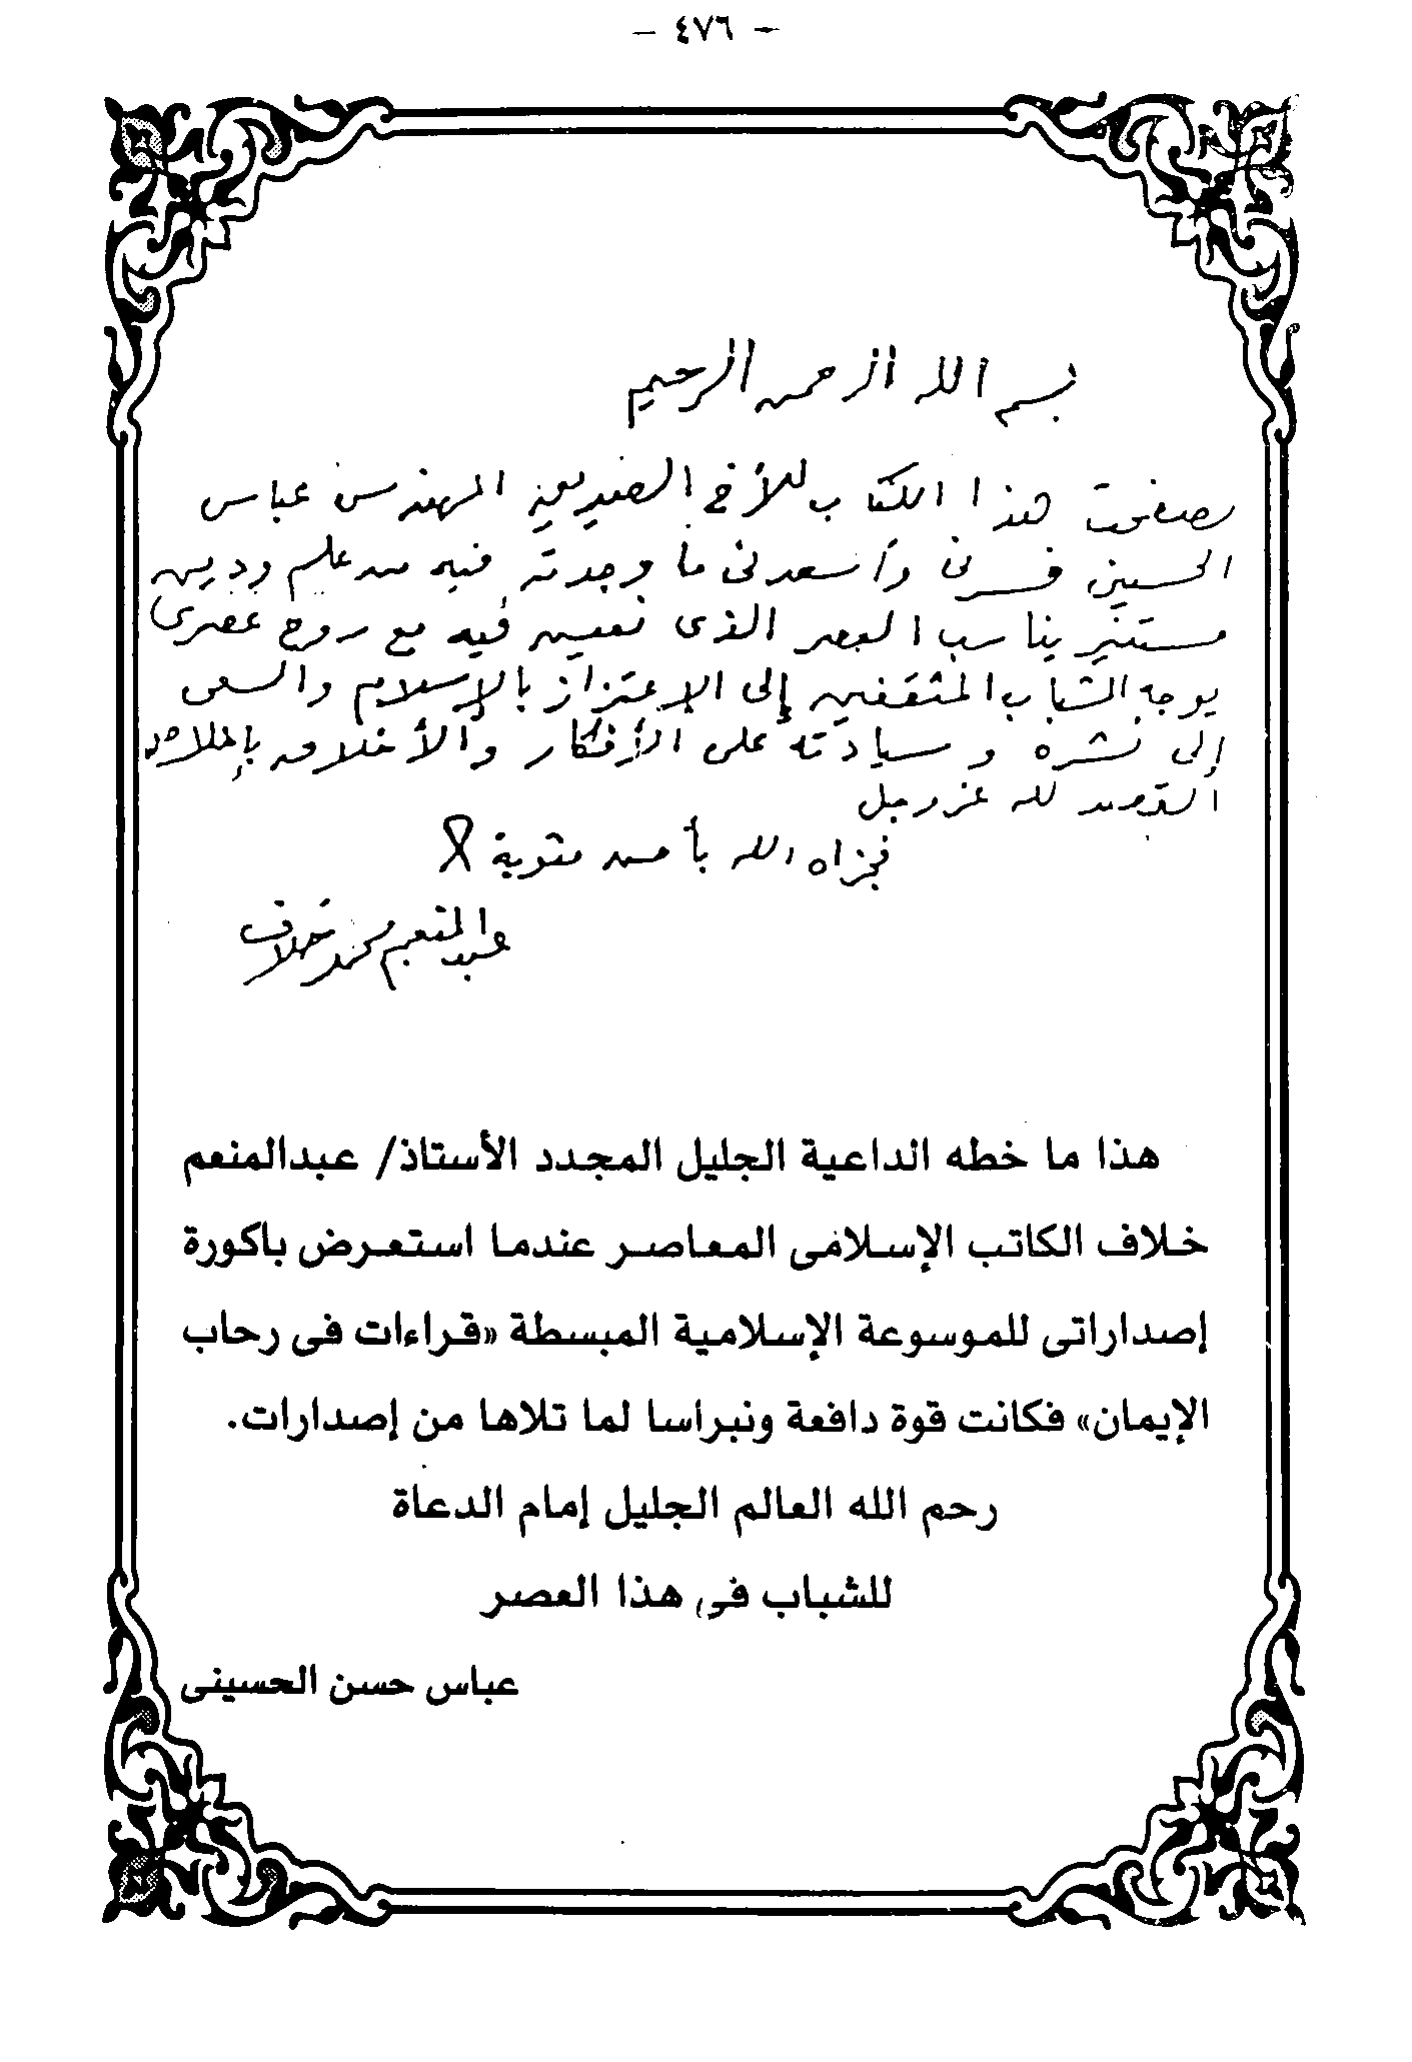 - ٤٧٦ -
بسم الله الرحمن الرحيم
تصفحت هذا الكتاب للأخ الصديق المهندس عباس
الحسينى فسرنى وأسعدنى ما وجدته فيه من علم ودين
مستنير يناسب العصر الذى نعيش فيه مع روح عصرى
يوجه الشباب المثقفين إلى الاعتزاز بالإسلام والسعى
إلى نشره وسيادته على الأفكار والأخلاق بإخلاص
القصد لله عز وجل
فجزاه الله بأحسن مثوبة
عبد المنعم محمد خلاف
هذا ما خطه الداعية الجليل المجدد الأستاذ/ عبدالمنعم
خلاف الكاتب الإسلامى المعاصر عندما استعرض باكورة
إصداراتى للموسوعة الإسلامية المبسطة «قراءات فى رحاب
الإيمان» فكانت قوة دافعة ونبراسا لما تلاها من إصدارات.
رحم الله العالم الجليل إمام الدعاة
للشباب فى هذا العصر
عباس حسن الحسينى